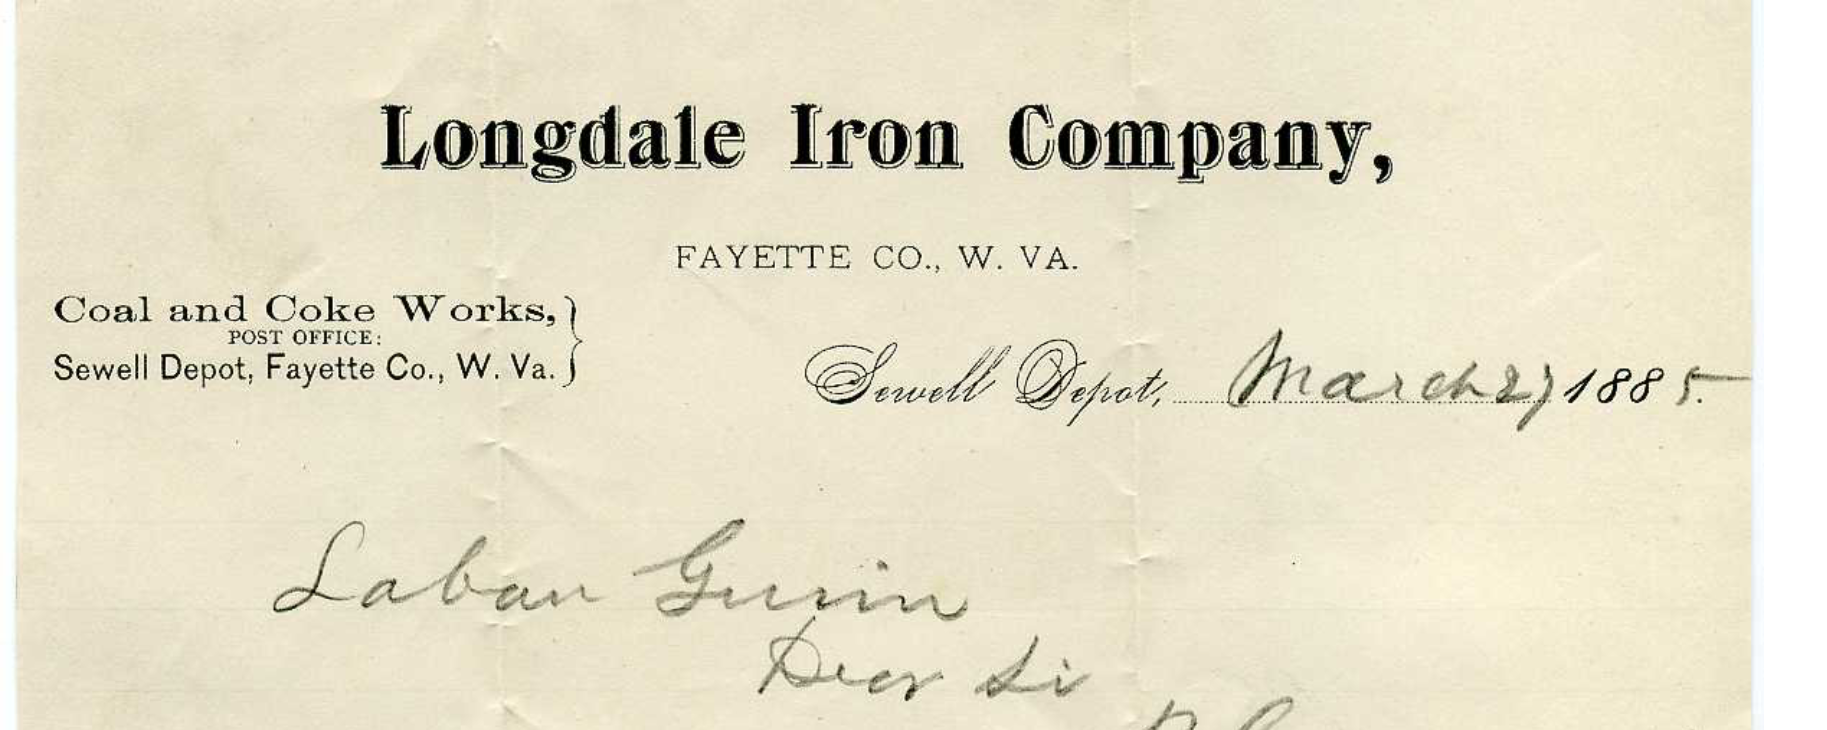 Longdale Iron Company,
FAYETTE CO., W. VA.
Coal and Coke Works,
POST OFFICE:
Sewell Depot, Fayette Co., W. Va.
Sewell Depot, March 27 1885.
Laban Gwinn
Dear Sir